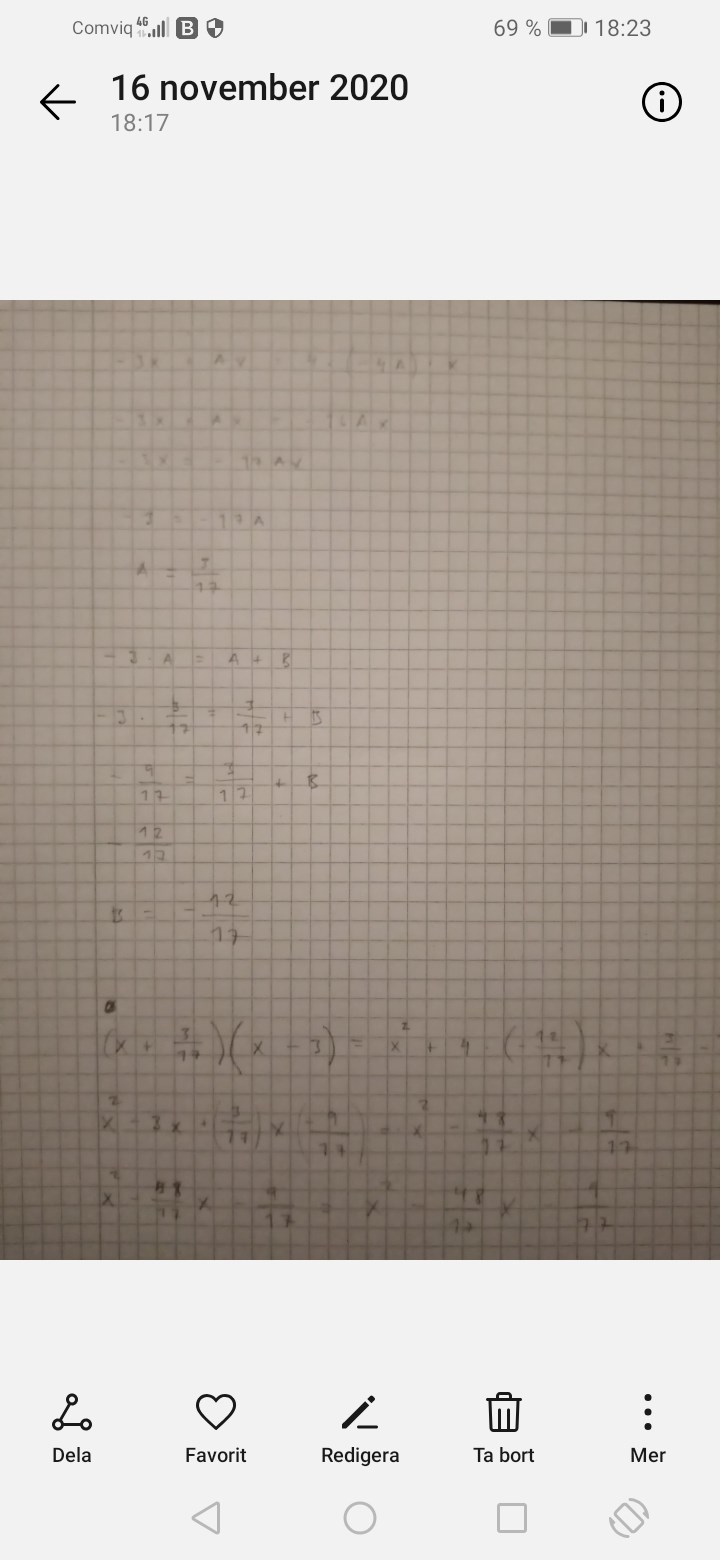 Comviq 4G B 69 % 18:23
16 november 2020
18:17
- 3x + Ax = 4 · (-4A) · x
- 3x + Ax = - 16Ax
- 3x = - 17Ax
- 3 = - 17A
A = 3/17
- 3 · A = A + B
- 3 · 3/17 = 3/17 + B
- 9/17 = 3/17 + B
- 12/17
B = - 12/17
(x + 3/17)(x - 3) = x² + 4 · (- 12/17) x + 3/17 -
x² - 3x + (3/17) x (- 9/17) = x² - 48/17 x - 9/17
x² - 48/17 x - 9/17 = x² - 48/17 x - 9/17
Dela Favorit Redigera Ta bort Mer